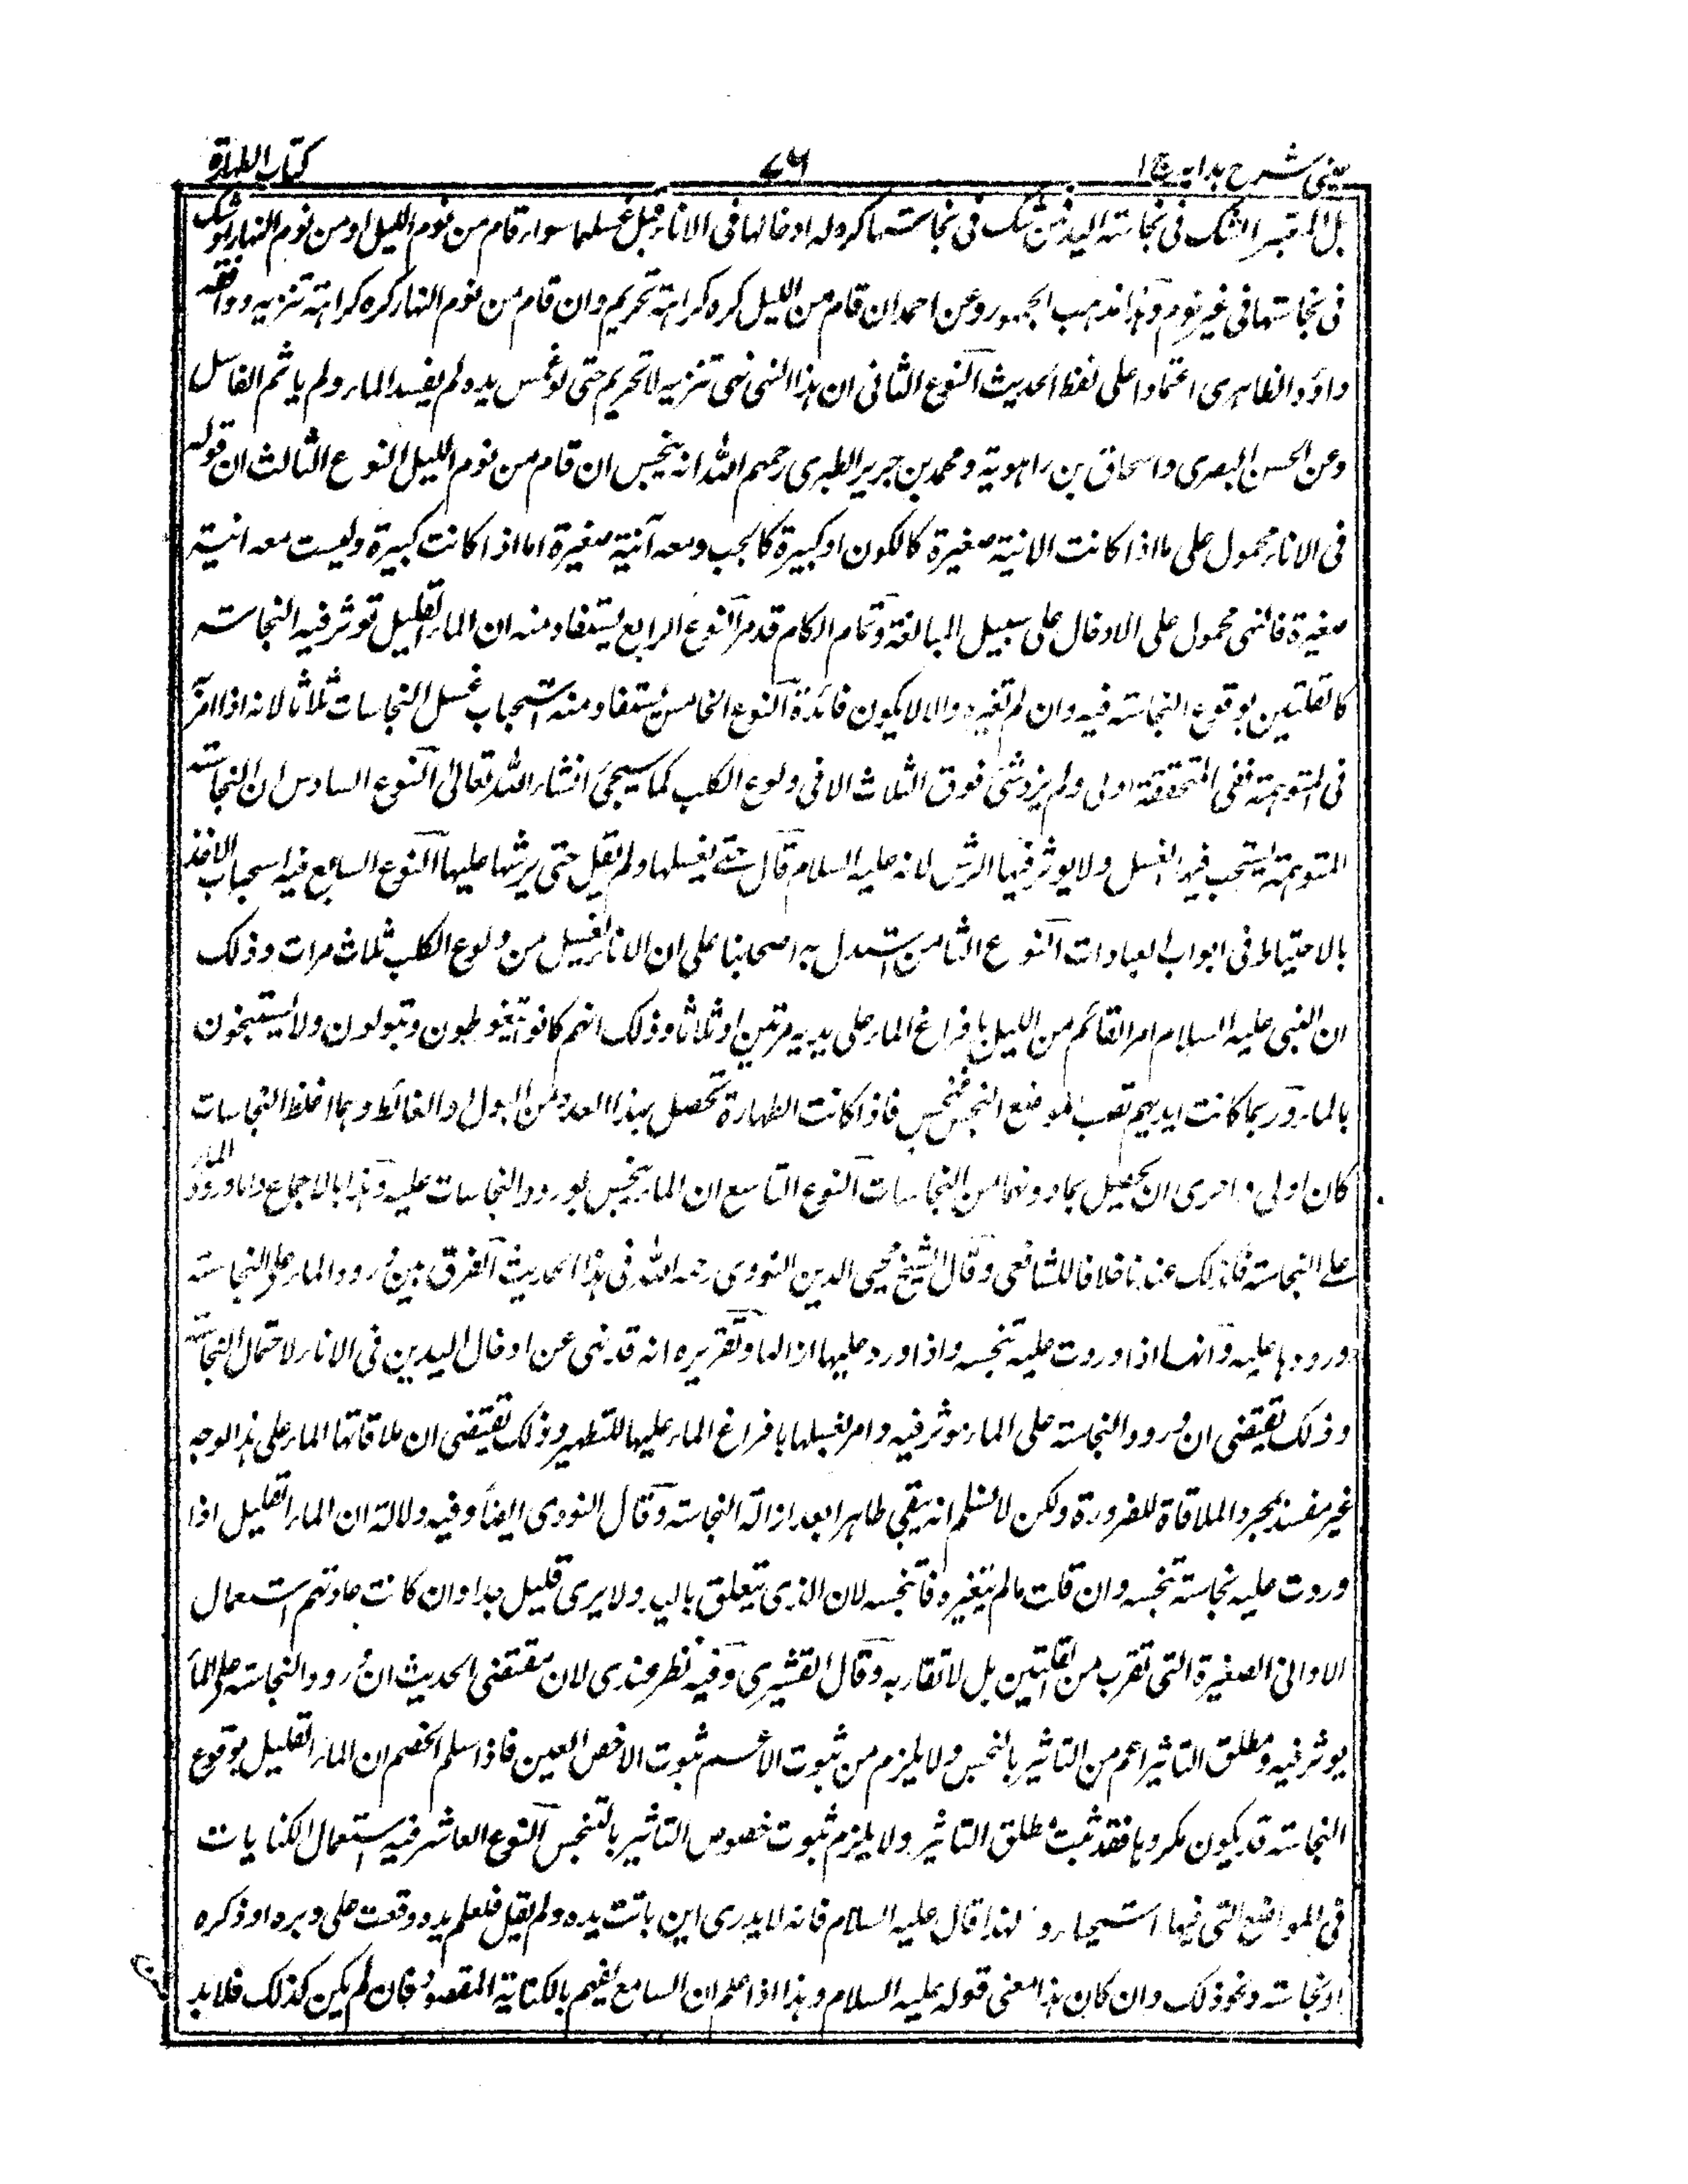 عینی شرح ہدایہ ج ۱
۷۶
کتاب الطہارة
بل المعتبر الشک فی نجاسته الید فمن شک فی نجاستها کره له ادخالها فی الاناء قبل غسلها سواء قام من نوم اللیل او من نوم النهار او شک
فی نجاستها فی غیر نوم وہذا مذہب الجمہور وعن احمد ان قام من اللیل کره کراہته تحریم وان قام من نوم النهار کره کراہته تنزیہ ووافقه
داؤد الظاہری اعتمادا علی لفظ الحدیث النوع الثانی ان ہذا النہی نہی تنزیہ لا تحریم حتی لو غمس یده لم یفسد الماء ولم یاثم الغاسل
وعن الحسن البصری واسحاق بن راہویة ومحمد بن جریر الطبری رحمہم اللہ انہ ینجس ان قام من نوم اللیل النوع الثالث ان قوله
فی الاناء محمول علی ما اذا کانت الانیة صغیرة کالکوز او کبیرة کالجب ومعه آنیة صغیرة اما اذا کانت کبیرة ولیست معه انیته
صغیرة فالنہی محمول علی الادخال علی سبیل المبالغة وتمام الکلام قد مر النوع الرابع یستفاد منه ان الماء القلیل توثر فیه النجاسته
کالقلتین بوقوع النجاسته فیه وان لم تغیره والا لا یکون فائدة النوع الخامس یستفاد منه استحباب غسل النجاسات ثلاثا لانه اذا امر
فی المتوہمته ففی المتحققة اولی ولم یزد شئ فوق الثلاث الا فی ولوغ الکلب کما سیجئ انشاء اللہ تعالیٰ النوع السادس ان النجاسته
المتوہمته یستحب فیها الغسل ولا یوثر فیها الرش لانه علیہ السلام قال حتے یغسلها ولم یقل حتی یرشها علیها النوع السابع فیه استحباب الاخذ
بالاحتیاط فی ابواب العبادات النوع الثامن استدل به اصحابنا علی ان الاناء یغسل من ولوغ الکلب ثلاث مرات وذلک
ان النبی علیہ السلام امر القائم من اللیل بافراغ الماء علی یدیه مرتین او ثلاثا وذلک انهم کانوا یتغوطون ویبولون ولا یستنجون
بالماء وربما کانت ایدیهم تصیب الموضع النجس فتنجس فاذا کانت الطهارة تحصل بهذا العدد من البول والغائط وہما اغلظ النجاسات
کان اولی واحری ان یحصل بما دونهما من النجاسات النوع التاسع ان الماء ینجس بورود النجاسات علیه وہذا بالاجماع واما ورود الماء
علے النجاسته فکذلک عندنا خلافا للشافعی وقال الشیخ محیی الدین النووی رحمہ اللہ فی ہذا الحدیث الفرق بین ورود الماء علی النجاسته
وورودہا علیه وانها اذا وردت علیه تنجسه واذا ورد علیها ازالها وتقریره انه قد نہی عن ادخال الیدین فی الاناء لاحتمال النجاسته
وذلک یقتضی ان ورود النجاسته علی الماء موثر فیه وامر بغسلها بافراغ الماء علیها للتطهیر وذلک یقتضی ان ملاقاتها الماء علی ہذا الوجه
غیر مفسد بمجرد الملاقاة للضرورة ولکن لا نسلم انه یبقی طاہرا بعد ازالة النجاسته وقال النووی ایضاً وفیه دلالة ان الماء القلیل اذا
وردت علیه نجاسته تنجسه وان قلت ما لم یتغیره فانه تنجسه لان الذی یتعلق بالید ولا یری قلیل جدا وان کانت عادتهم استعمال
الاوانی الصغیرة التی تقرب من القلتین بل لا تقاربه وقال القشیری وفیه نظر عندی لان مقتضی الحدیث ان ورود النجاسته علی الماء
یوثر فیه ومطلق التاثیر اعم من التاثیر بالنجس ولا یلزم من ثبوت الاعم ثبوت الاخص العین فاذا سلم الخصم ان الماء القلیل بوقوع
النجاسته قد یکون مکروہا فقد ثبت مطلق التاثیر ولا یلزم ثبوت خصوص التاثیر بالتنجس النوع العاشر فیه استعمال الکنایات
فی المواضع التی فیها استحیاء و لهذا قال علیہ السلام فانه لا یدری این باتت یده ولم یقل فلعلم یده وقعت علی دبره او ذکره
او نجاسته ونحو ذلک وان کان ہذا معنی قوله علیہ السلام وہذا اذا علم ان السامع یفهم بالکنایة المقصود فان لم یکن کذلک فلا بد